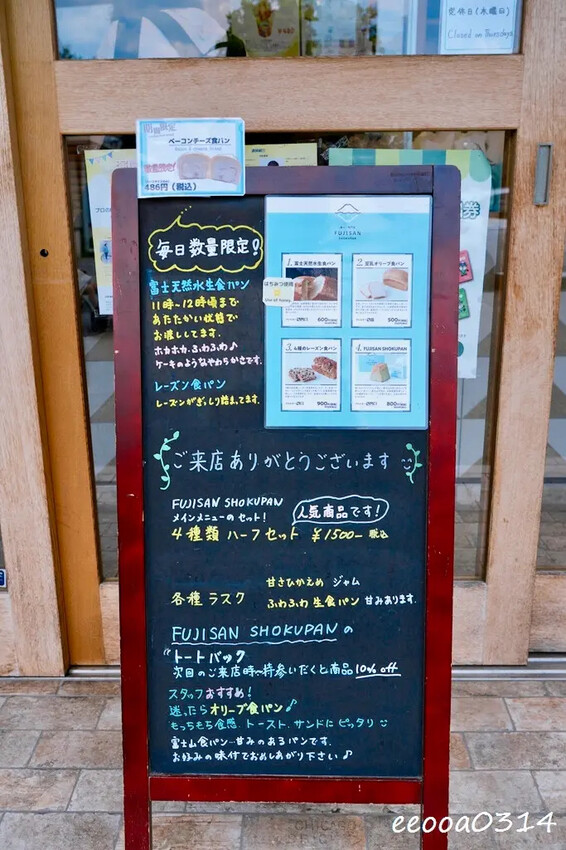 定休日(木曜日)
Closed on Thursdays
ベーコンチーズ食パン
486円(税込)
毎日数量限定!
富士天然水生食パン
11時~12時頃まで
あたたかい状態で
お渡ししてます。
ホカホカ、ふわふわ♪
ケーキのようなやわらかさです。
レーズン食パン
レーズンがぎっしり詰まってます。
FUJISAN
SHOKUPAN
1. 富士天然水生食パン
はちみつ使用
Use of honey
600
2. 豆乳オリーブ食パン
500
3. 4種のレーズン食パン
900
4. FUJISAN SHOKUPAN
800
ご来店ありがとうございます
FUJISAN SHOKUPAN
メインメニューのセット!
人気商品です!
4種類 ハーフセット ¥1500- 税込
各種ラスク
甘さひかえめ ジャム
ふわふわ 生食パン 甘みあります。
FUJISAN SHOKUPANの
トートバック
次回のご来店時~持参いただくと商品10% off
スタッフおすすめ!
迷ったらオリーブ食パン♪
もっちもち食感、トースト、サンドにピッタリ
富士山食パン…甘みのあるパンです。
お好みの味付でおめしあがり下さい♪
eeooa0314